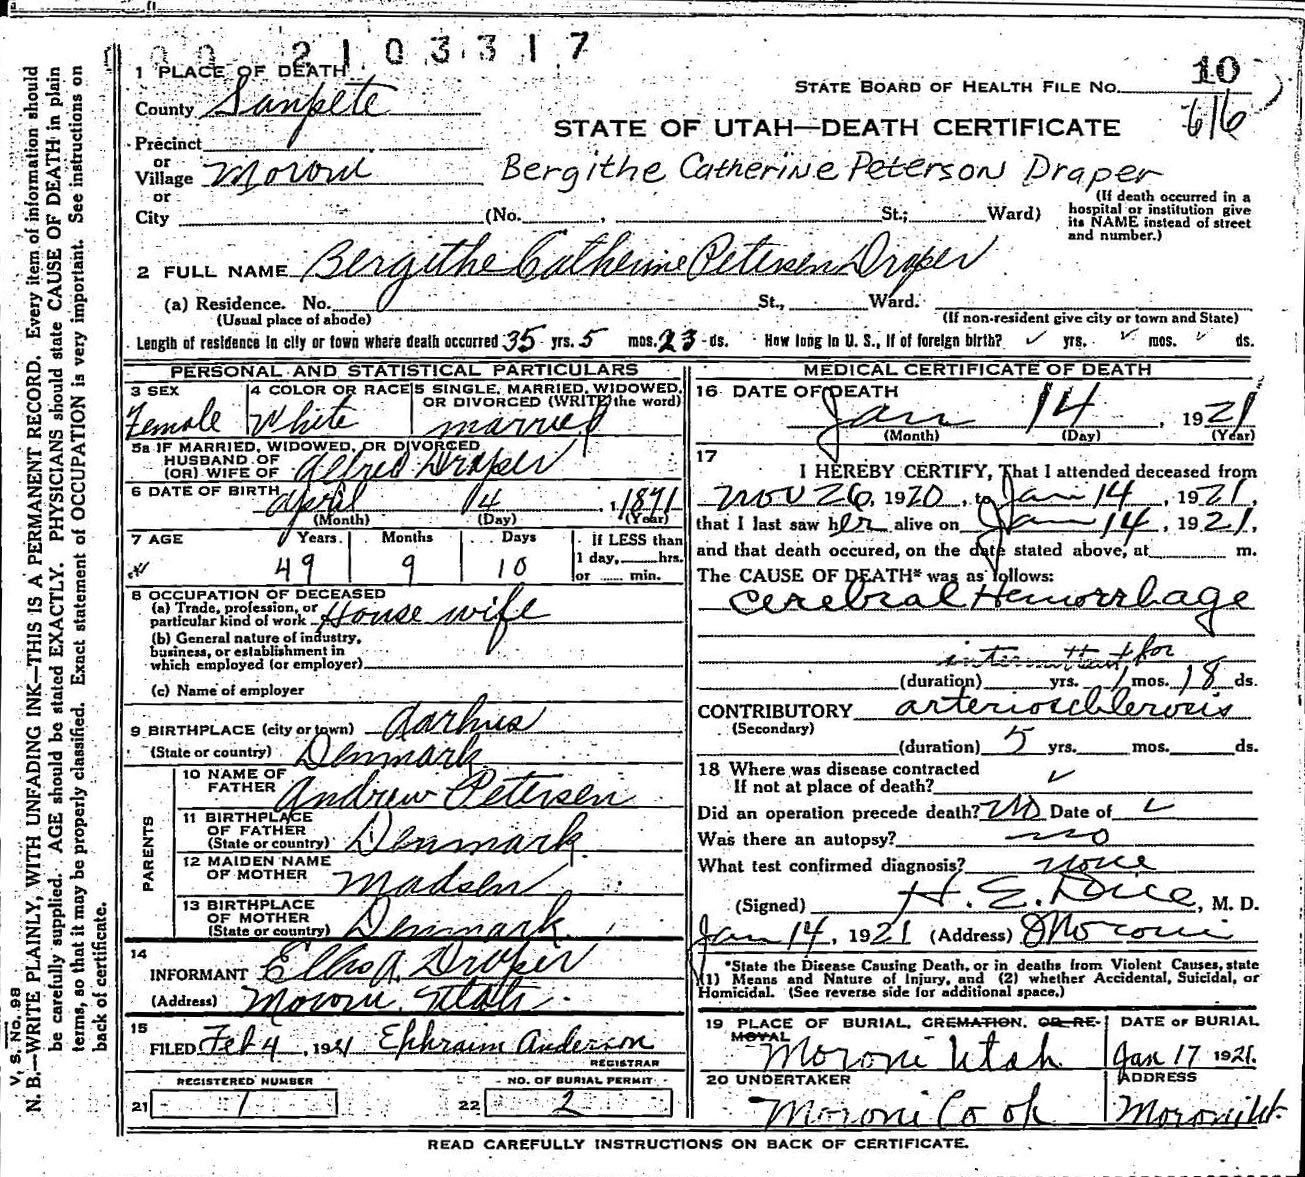 2 1 0 3 3 1 7
10
STATE BOARD OF HEALTH FILE NO.
616
1 PLACE OF DEATH
County Sanpete
STATE OF UTAH—DEATH CERTIFICATE
Precinct
or
Village Moroni
Bergithe Catherine Peterson Draper
or
City (No. , St.; Ward)
(If death occurred in a
hospital or institution give
its NAME instead of street
and number.)
2 FULL NAME Bergithe Catherine Petersen Draper
(a) Residence. No. St., Ward.
(Usual place of abode) (If non-resident give city or town and State)
Length of residence in city or town where death occurred 35 yrs. 5 mos. 23 ds. How long in U. S., if of foreign birth? ✓ yrs. ✓ mos. ✓ ds.
PERSONAL AND STATISTICAL PARTICULARS
3 SEX
Female
4 COLOR OR RACE
White
5 SINGLE, MARRIED, WIDOWED,
OR DIVORCED (WRITE the word)
married
5a IF MARRIED, WIDOWED, OR DIVORCED
HUSBAND OF
(OR) WIFE OF Alfred Draper
6 DATE OF BIRTH April 4, 1871
(Month) (Day) (Year)
7 AGE Years Months Days
49 9 10
If LESS than
1 day, hrs.
or min.
8 OCCUPATION OF DECEASED
(a) Trade, profession, or
particular kind of work House wife
(b) General nature of industry,
business, or establishment in
which employed (or employer)
(c) Name of employer
9 BIRTHPLACE (city or town) Aarhus
(State or country) Denmark
PARENTS
10 NAME OF
FATHER Andrew Petersen
11 BIRTHPLACE
OF FATHER
(State or country) Denmark
12 MAIDEN NAME
OF MOTHER Madsen
13 BIRTHPLACE
OF MOTHER
(State or country) Denmark
14
INFORMANT A. Draper
(Address) Moroni, Utah
15
FILED Feb 4, 1921 Ephraim Anderson
REGISTRAR
REGISTERED NUMBER
21 1
NO. OF BURIAL PERMIT
22 2
MEDICAL CERTIFICATE OF DEATH
16 DATE OF DEATH
Jan 14, 1921
(Month) (Day) (Year)
17
I HEREBY CERTIFY, That I attended deceased from
Nov 26, 1920, to Jan 14, 1921,
that I last saw her alive on Jan 14, 1921,
and that death occured, on the date stated above, at m.
The CAUSE OF DEATH* was as follows:
Cerebral Hemorrhage
intermittent, for
(duration) yrs. 1 mos. 18 ds.
CONTRIBUTORY arteriosclerosis
(Secondary)
(duration) 5 yrs. mos. ds.
18 Where was disease contracted
If not at place of death? ✓
Did an operation precede death? no Date of ✓
Was there an autopsy? no
What test confirmed diagnosis? none
(Signed) H. E. Dice, M. D.
Jan 14, 1921 (Address) Moroni
*State the Disease Causing Death, or in deaths from Violent Causes, state
(1) Means and Nature of Injury, and (2) whether Accidental, Suicidal, or
Homicidal. (See reverse side for additional space.)
19 PLACE OF BURIAL, CREMATION, OR RE-
MOVAL
Moroni Utah
DATE OF BURIAL
Jan 17 1921.
20 UNDERTAKER
Moroni
ADDRESS
Moroni Ut.
READ CAREFULLY INSTRUCTIONS ON BACK OF CERTIFICATE.
V. S. No. 98
N. B.—WRITE PLAINLY, WITH UNFADING INK—THIS IS A PERMANENT RECORD. Every item of information should
be carefully supplied. AGE should be stated EXACTLY. PHYSICIANS should state CAUSE OF DEATH in plain
terms, so that it may be properly classified. Exact statement of OCCUPATION is very important. See instructions on
back of certificate.